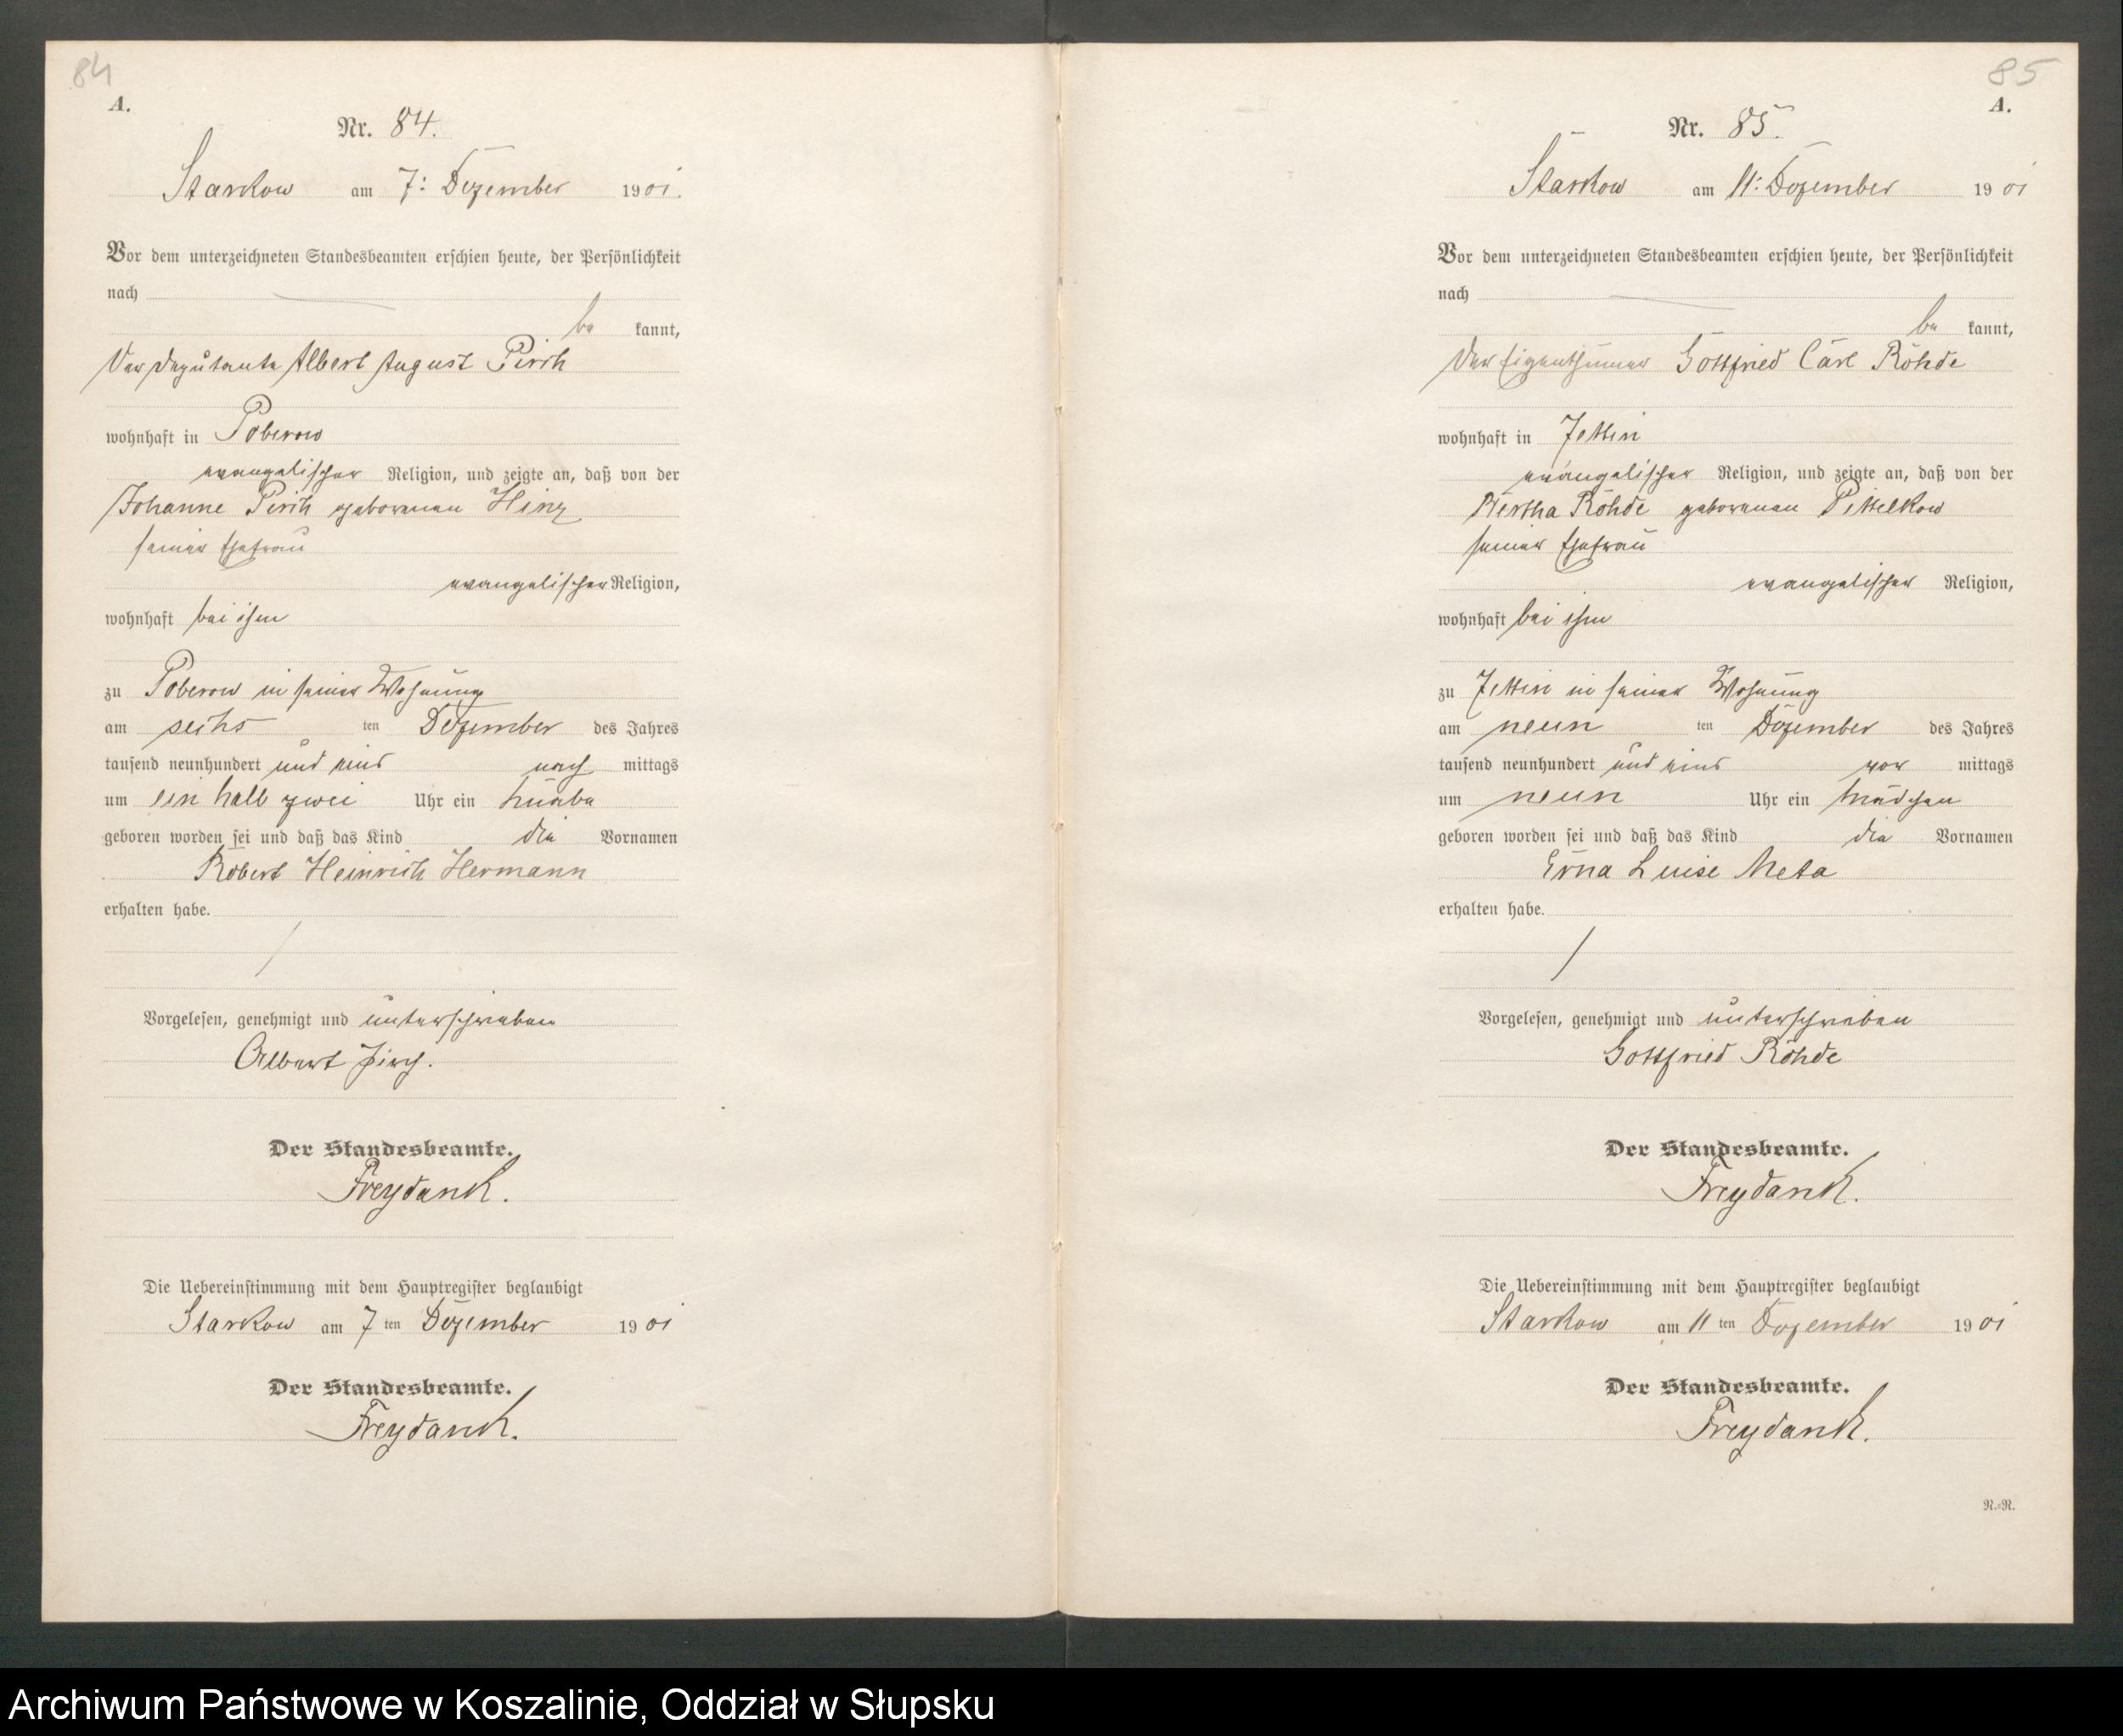 84
A.
Nr. 84.
Starkow am 7. Dezember 1901.
Vor dem unterzeichneten Standesbeamten erschien heute, der Persönlichkeit
nach
be kannt,
Der Deputante Albert August Pirch
wohnhaft in Poberow
evangelischer Religion, und zeigte an, daß von der
Johanne Pirch geborenen Hinz
seiner Ehefrau
evangelischer Religion,
wohnhaft bei ihm
zu Poberow in seiner Wohnung
am sechs ten Dezember des Jahres
tausend neunhundert und eins nach mittags
um ein halb zwei Uhr ein Knabe
geboren worden sei und daß das Kind die Vornamen
Robert Heinrich Hermann
erhalten habe.
Vorgelesen, genehmigt und unterschrieben
Albert Pirch.
Der Standesbeamte.
Freydank.
Die Uebereinstimmung mit dem Hauptregister beglaubigt
Starkow am 7 ten Dezember 1901
Der Standesbeamte.
Freydank.
85
A.
Nr. 85.
Starkow am 11. Dezember 1901
Vor dem unterzeichneten Standesbeamten erschien heute, der Persönlichkeit
nach
be kannt,
Der Eigenthümer Gottfried Carl Röhde
wohnhaft in Zettin
evangelischer Religion, und zeigte an, daß von der
Bertha Röhde geborenen Pittelkow
seiner Ehefrau
evangelischer Religion,
wohnhaft bei ihm
zu Zettin in seiner Wohnung
am neun ten Dezember des Jahres
tausend neunhundert und eins vor mittags
um neun Uhr ein Mädchen
geboren worden sei und daß das Kind die Vornamen
Erna Luise Meta
erhalten habe.
Vorgelesen, genehmigt und unterschrieben
Gottfried Röhde
Der Standesbeamte.
Freydank.
Die Uebereinstimmung mit dem Hauptregister beglaubigt
Starkow am 11 ten Dezember 1901
Der Standesbeamte.
Freydank.
R.=R.
Archiwum Państwowe w Koszalinie, Oddział w Słupsku